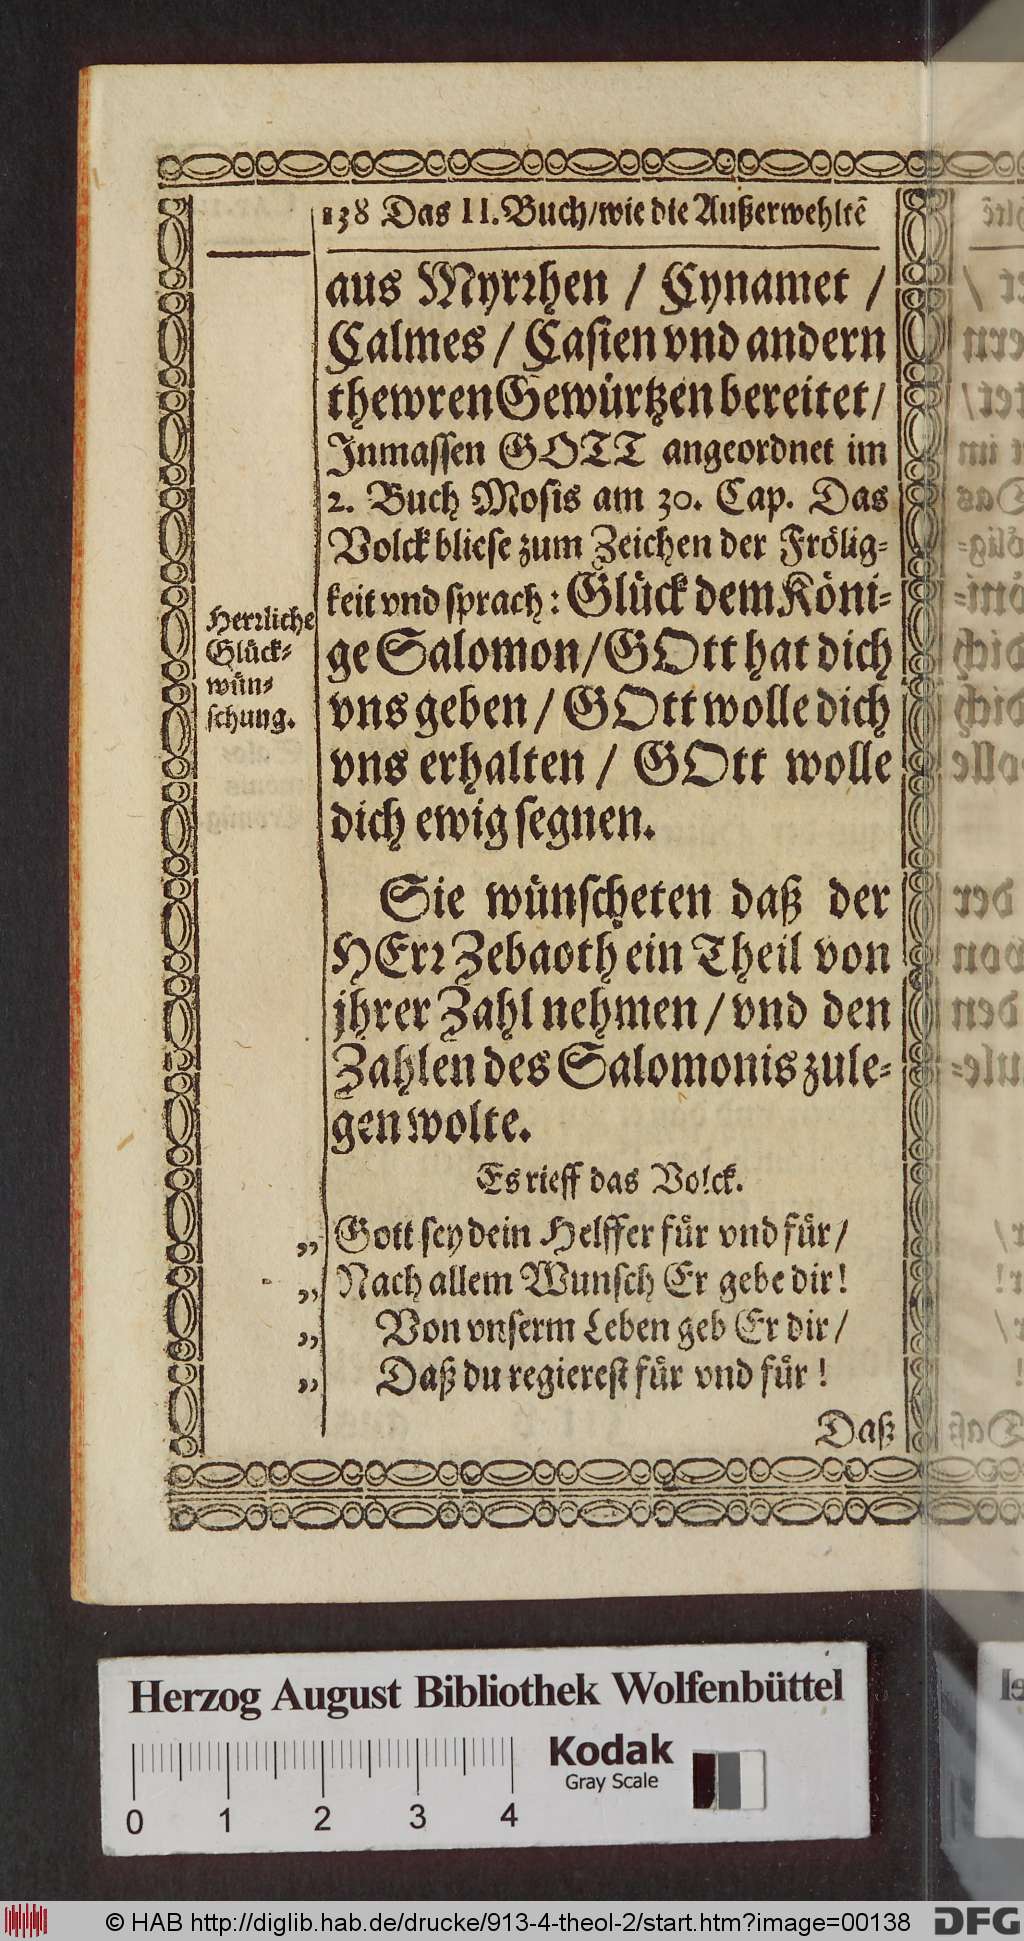 138 Das II. Buch/wie die Außerwehltẽ
aus Myrrhen / Cynamet /
Calmes / Casien vnd andern
thewren Gewürtzen bereitet /
Inmassen GOTT angeordnet im
2. Buch Mosis am 30. Cap. Das
Volck bliese zum Zeichen der Frölig-
keit vnd sprach: Glück dem Köni-
ge Salomon/GOtt hat dich
vns geben / GOtt wolle dich
vns erhalten / GOtt wolle
dich ewig segnen.
Herrliche
Glück-
wün-
schung.
Sie wünscheten daß der
HErr Zebaoth ein Theil von
jhrer Zahl nehmen / vnd den
Zahlen des Salomonis zule-
gen wolte.
Es rieff das Volck.
„ Gott sey dein Helffer für vnd für /
„ Nach allem Wunsch Er gebe dir!
„ Von vnserm Leben geb Er dir /
„ Daß du regierest für vnd für !
Daß
Herzog August Bibliothek Wolfenbüttel
Kodak
Gray Scale
0 1 2 3 4
© HAB http://diglib.hab.de/drucke/913-4-theol-2/start.htm?image=00138
DFG